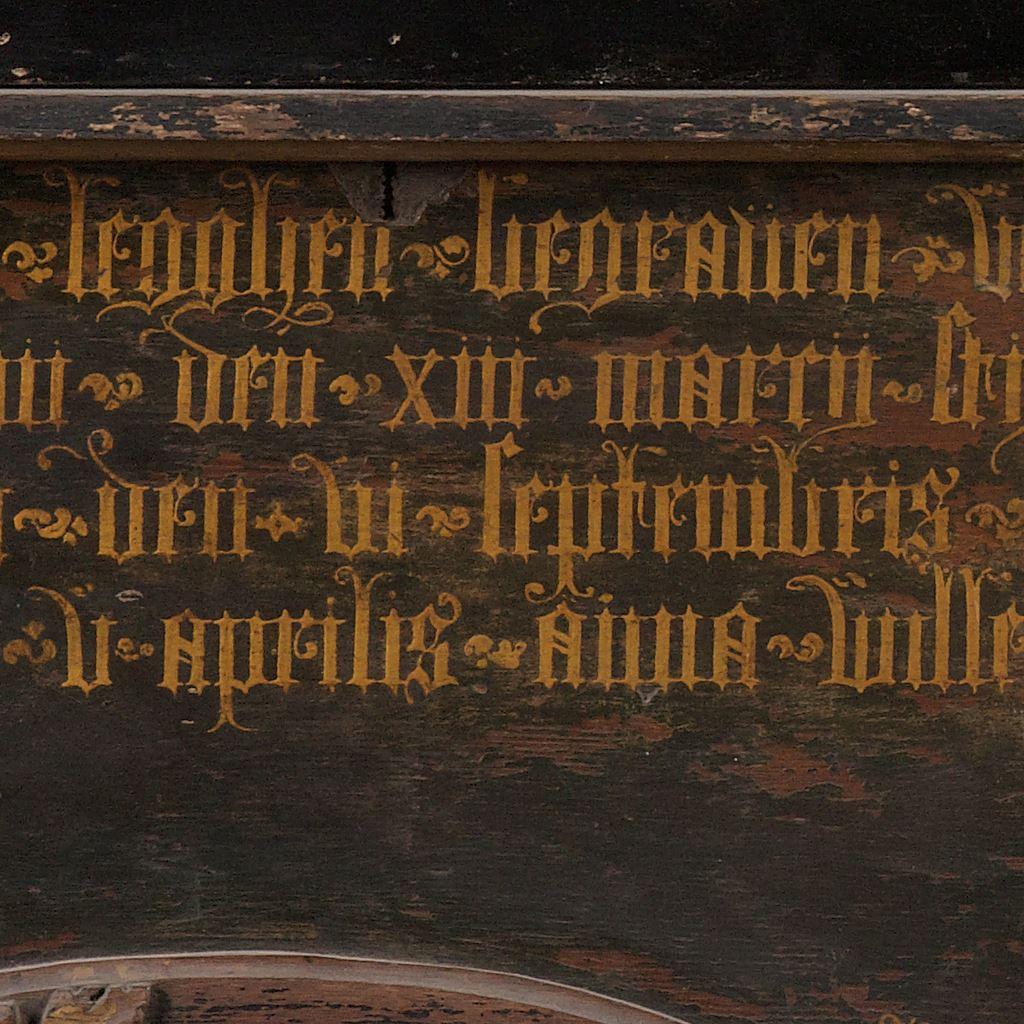 legghen begraven
den xiii marcij
den vi septembris
v aprilis anna wille